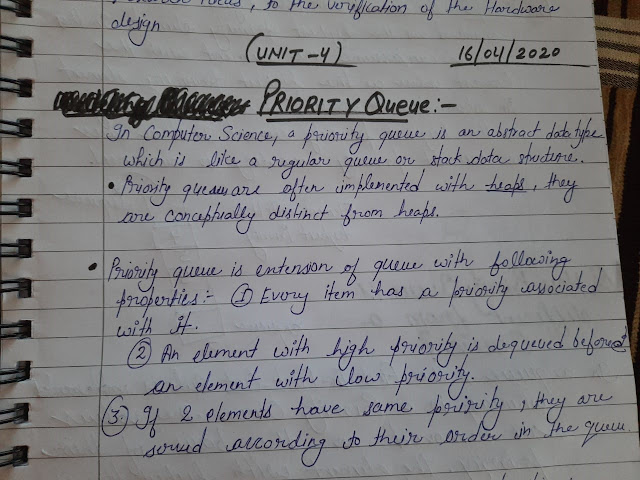 focus, to the verification of the Hardware
design
(UNIT-4) 16/04/2020
PRIORITY Queue:-
In Computer Science, a priority queue is an abstract data type
which is like a regular queue or stack data structure.
• Priority queue are often implemented with heaps, they
are conceptually distinct from heaps.
• Priority queue is extension of queue with following
properties:- ① Every item has a priority associated
with it.
② An element with high priority is dequeued before
an element with low priority.
③ If 2 elements have same priority, they are
served according to their order in the queue.